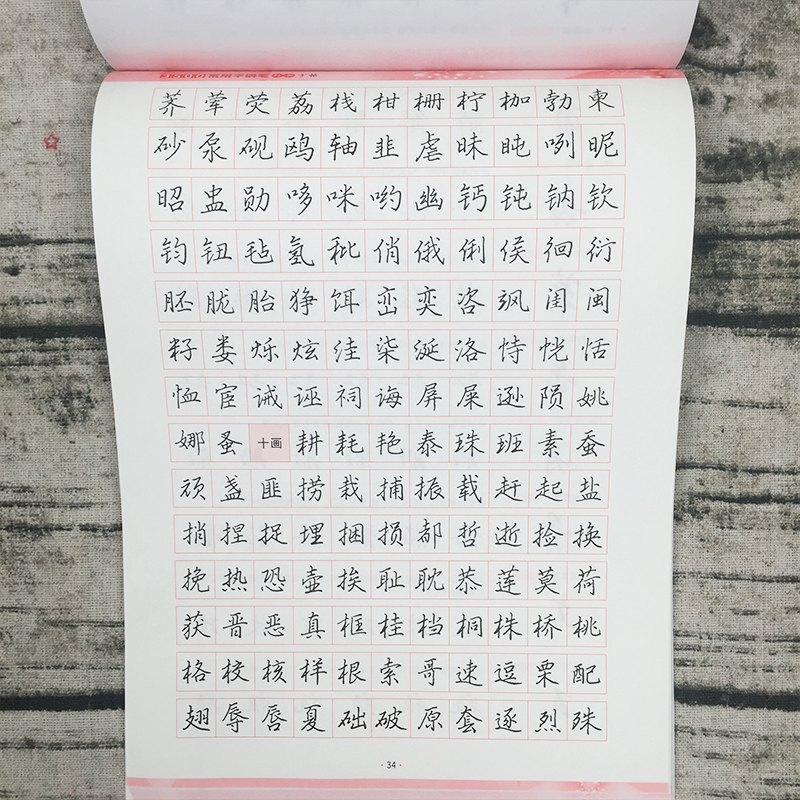 荠荤荧荔栈柑栅柠枷勃柬
砂泵砚鸥轴韭虐昧盹咧昵
昭盅勋哆咪哟幽钙钝钠钦
钧钮毡氢秕俏俄俐侯徊衍
胚胧胎狰饵峦奕咨飒闺闽
籽娄烁炫洼柒涎洛恃恍恬
恤宦诫诬祠诲屏屎逊陨姚
娜蚤十画耕耗艳泰珠班素蚕
顽盏匪捞栽捕振载赶起盐
捎捏捉埋捆损都哲逝捡换
挽热恐壶挨耻耽恭莲莫荷
获晋恶真框桂档桐株桥桃
格校核样根索哥速逗栗配
翅辱唇夏础破原套逐烈殊
·34·